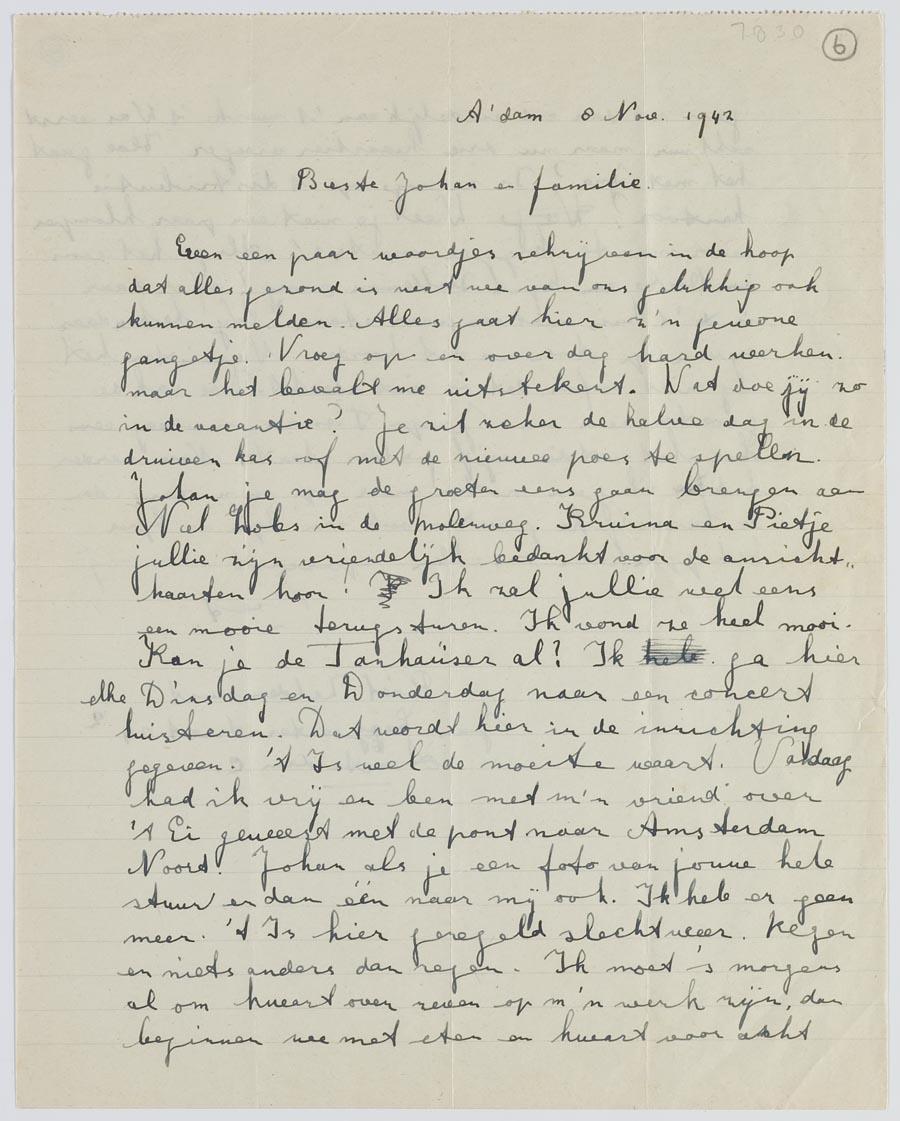 7830
6
A'dam 8 Nov. 1942
Beste Johan en familie.
Even een paar woordjes schrijven in de hoop
dat alles gezond is wat we van ons gelukkig ook
kunnen melden. Alles gaat hier z'n gewone
gangetje. Vroeg op en over dag hard werken.
maar het bevalt me uitstekent. Wat doe jij zo
in de vacantie? Je zit zeker de halve dag in de
druiven kas of met de nieuwe poes te spellen.
Johan je mag de groeten eens gaan brengen aan
Nel in de Molenweg. Kruina en Pietje
jullie zijn vriendelijk bedankt voor de ansicht„
kaarten hoor! Ik zal jullie wel eens
een mooie terugsturen. Ik vond ze heel mooi.
Kan je de Tanhaüser al? Ik ga hier
elke Dinsdag en Donderdag naar een concert
luisteren. Dat wordt hier in de inrichting
gegeven. 't Is wel de moeite waart. Vandaag
had ik vrij en ben met m'n vriend over
't Ei geweest met de pont naar Amsterdam
Noort. Johan als je een foto van jouw heb
stuur er dan één naar mij ook. Ik heb er geen
meer. 't Is hier geregeld slecht weer. Regen
en niets anders dan regen. Ik moet 's morgens
al om kwart over zeven op m'n werk zijn, dan
beginnen we met eten en kwart voor acht